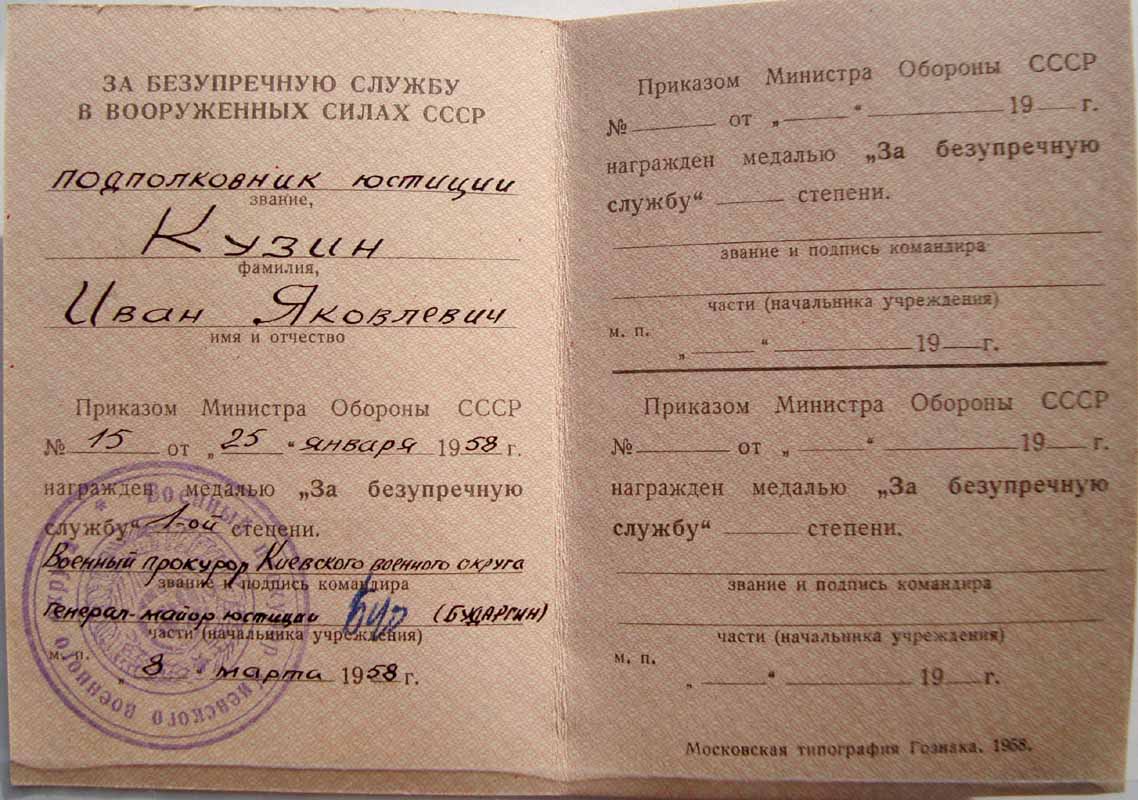 ЗА БЕЗУПРЕЧНУЮ СЛУЖБУ
В ВООРУЖЕННЫХ СИЛАХ СССР
подполковник юстиции
звание,
Кузин
фамилия,
Иван Яковлевич
имя и отчество
Приказом Министра Обороны СССР
№ 15 от „25“ января 1958 г.
награжден медалью „За безупречную
службу“ 1-ой степени.
Военный прокурор Киевского военного округа
звание и подпись командира
генерал-майор юстиции (БУДАРГИН)
части (начальника учреждения)
м. п.
„8“ марта 1958 г.
* Военный прокурор Киевского военного округа
Приказом Министра Обороны СССР
№ от „ “ 19 г.
награжден медалью „За безупречную
службу“ степени.
звание и подпись командира
части (начальника учреждения)
м. п.
„ “ 19 г.
Приказом Министра Обороны СССР
№ от „ “ 19 г.
награжден медалью „За безупречную
службу“ степени.
звание и подпись командира
части (начальника учреждения)
м. п.
„ “ 19 г.
Московская типография Гознака. 1958.